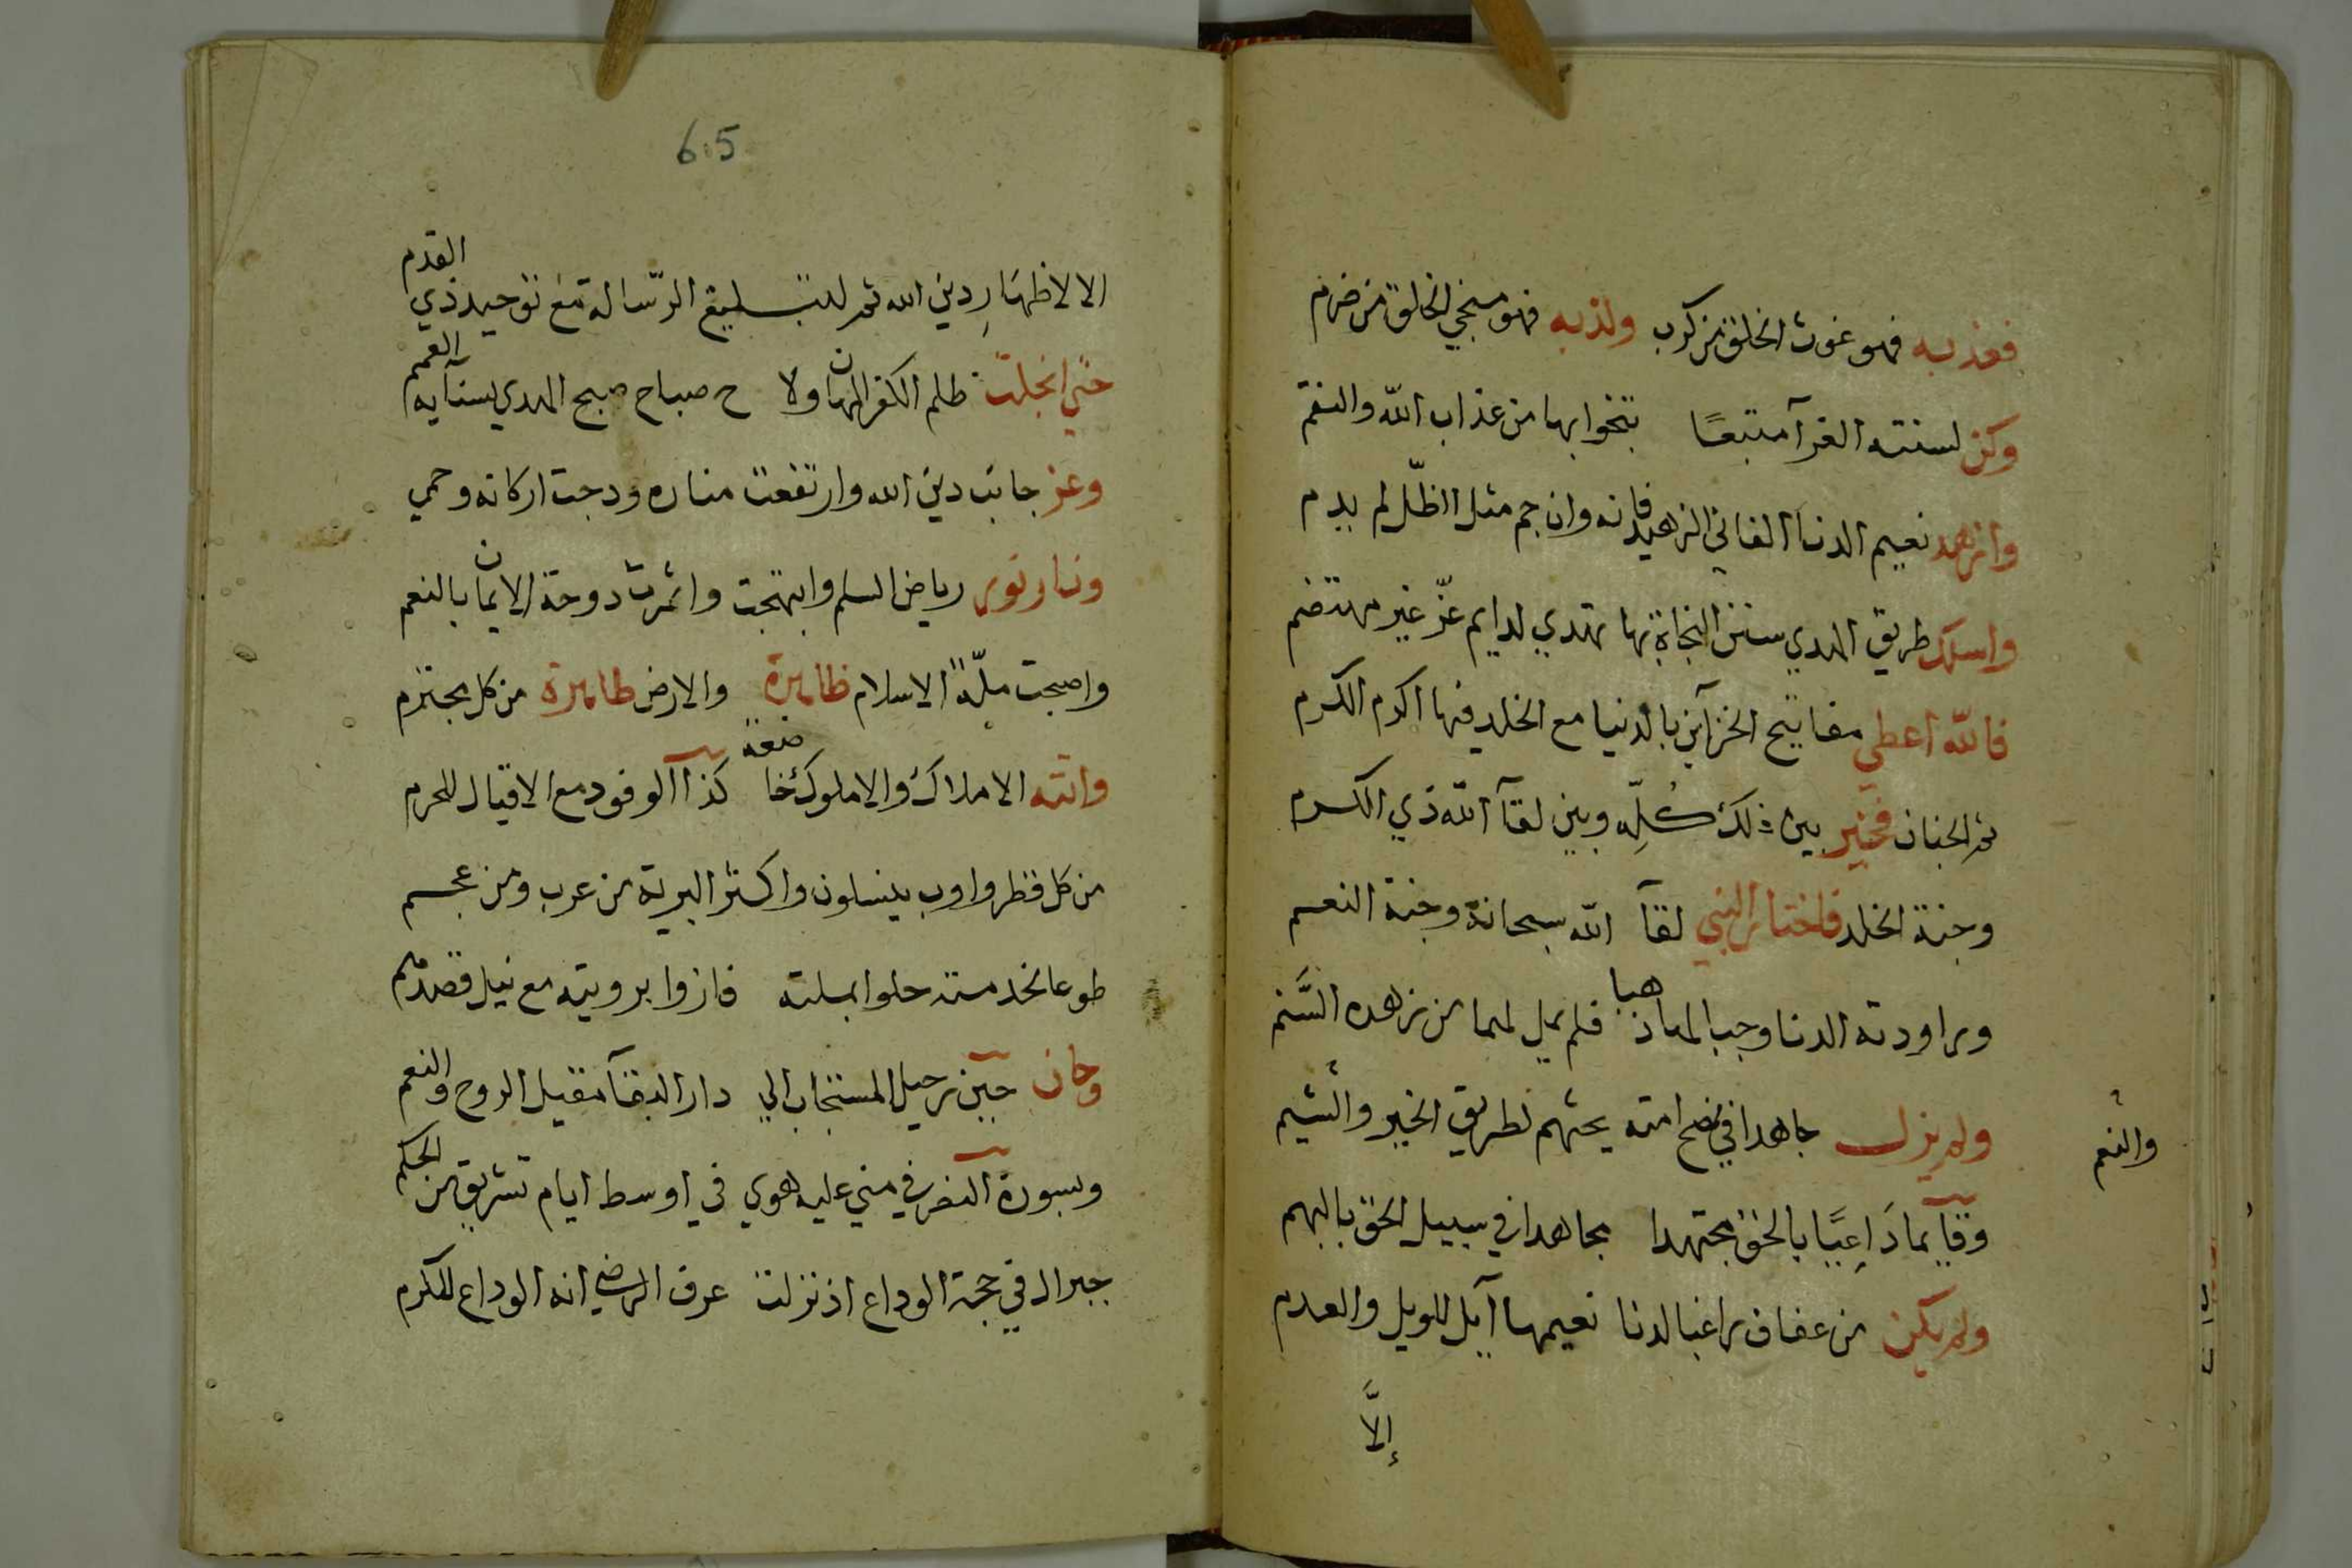 فعذ به فهو غوث الخلق من كرب ولذ به فهو منجي الخلق من ضرم
وكن لسنته الغرآ متبعًا تنجوا بها من عذاب الله والنقم
وازهد نعيم الدنا الفاني الزهيد فانه وان جم مثل الظّل لم يدم
واسلك طريق الهدي سنن النجاة بها تهتدي لدايم عزّ غير مهتضم
فاللّه اعطي مفاتيح الخزآين بالدنيا مع الخلد فيها اكرم الكرم
ثم الجنان فخير بين ذلك كُلِّه وبين لقآ اللّه ذي الكرم
وجنة الخلد فاختار النبي لقآ اللّه سبحانه وجنة النعم
وراودته الدنا وجب المعاذهبا فلم يمل لهما من زهده السَّنم
ولم يزل جاهدا في نصح امته يحثهم لطريق الخير والشيم
والنعم
وقآيما دَاعِيًا بالحق مجتهدا مجاهدا في سبيل الحق بالبهم
ولم يكن من عفاف راغبا لدنا نعيمها آيل للويل والعدم
إلاَّ
65
الا لاظهار دين الله ثم لتبليغ الرّسالة مع توحيد ذي القدم
حتي انجلت ظلم الكفر المهان ولا ح صباح صبح الهدي بسنآيه العمم
وعز جانب دين الله وارتفعت مناره ودجت اركانه وحمي
ونار نور رياض السلم وابتهجت واثمرت دوحة الايمان بالنعم
واصبحت ملّة الاسلام ظاهرة والارض طاهرة من كل مجترم
واتته الاملاك والاملوك خاضعة كذا آلوفود مع الاقيال للحرم
من كل قطر واوب ينسلون واكثر البرية من عرب ومن عجم
طوعا لخدمته حلوا بملته فازوا برويته مع نيل قصدهم
وحان حين رحيل المستجاب الي دار البقآ مقيل الروح والنعم
وبسورة النصر في مني عليه هوي في اوسط ايام تشريق من الحكم
جبرال في حجة الوداع اذ نزلت عرف الرضي انه الوداع للكرم